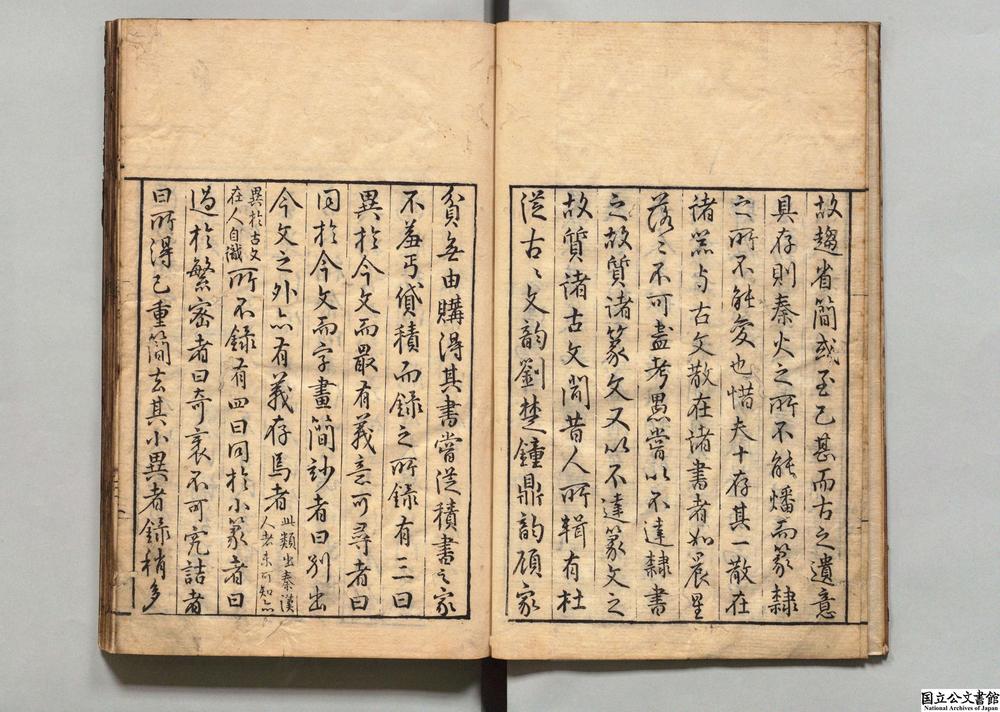 故趨省簡或至已甚而古之遺意
具存則秦火之所不能燔而篆隸
之所不能變也惜夫十存其一散在
諸器与古文散在諸書者如晨星
落〻不可盡考愚嘗以不達隸書
之故質諸篆文又以不達篆文之
故質諸古文間昔人所輯有杜
從古〻文韵劉楚鐘鼎韵顧家
貧無由購得其書嘗從積書之家
不羞丐貸積而錄之所錄有三曰
異於今文而最有義意可尋者曰
同於今文而字畫簡玅者曰別出
今文之外亦有義存焉者此類出秦漢人者未可知亦
異於古文在人自識所不錄有四曰同於小篆者曰
過於繁密者曰奇衺不可究詰者
曰所得已重簡去其小異者錄稍多
国立公文書館
National Archives of Japan